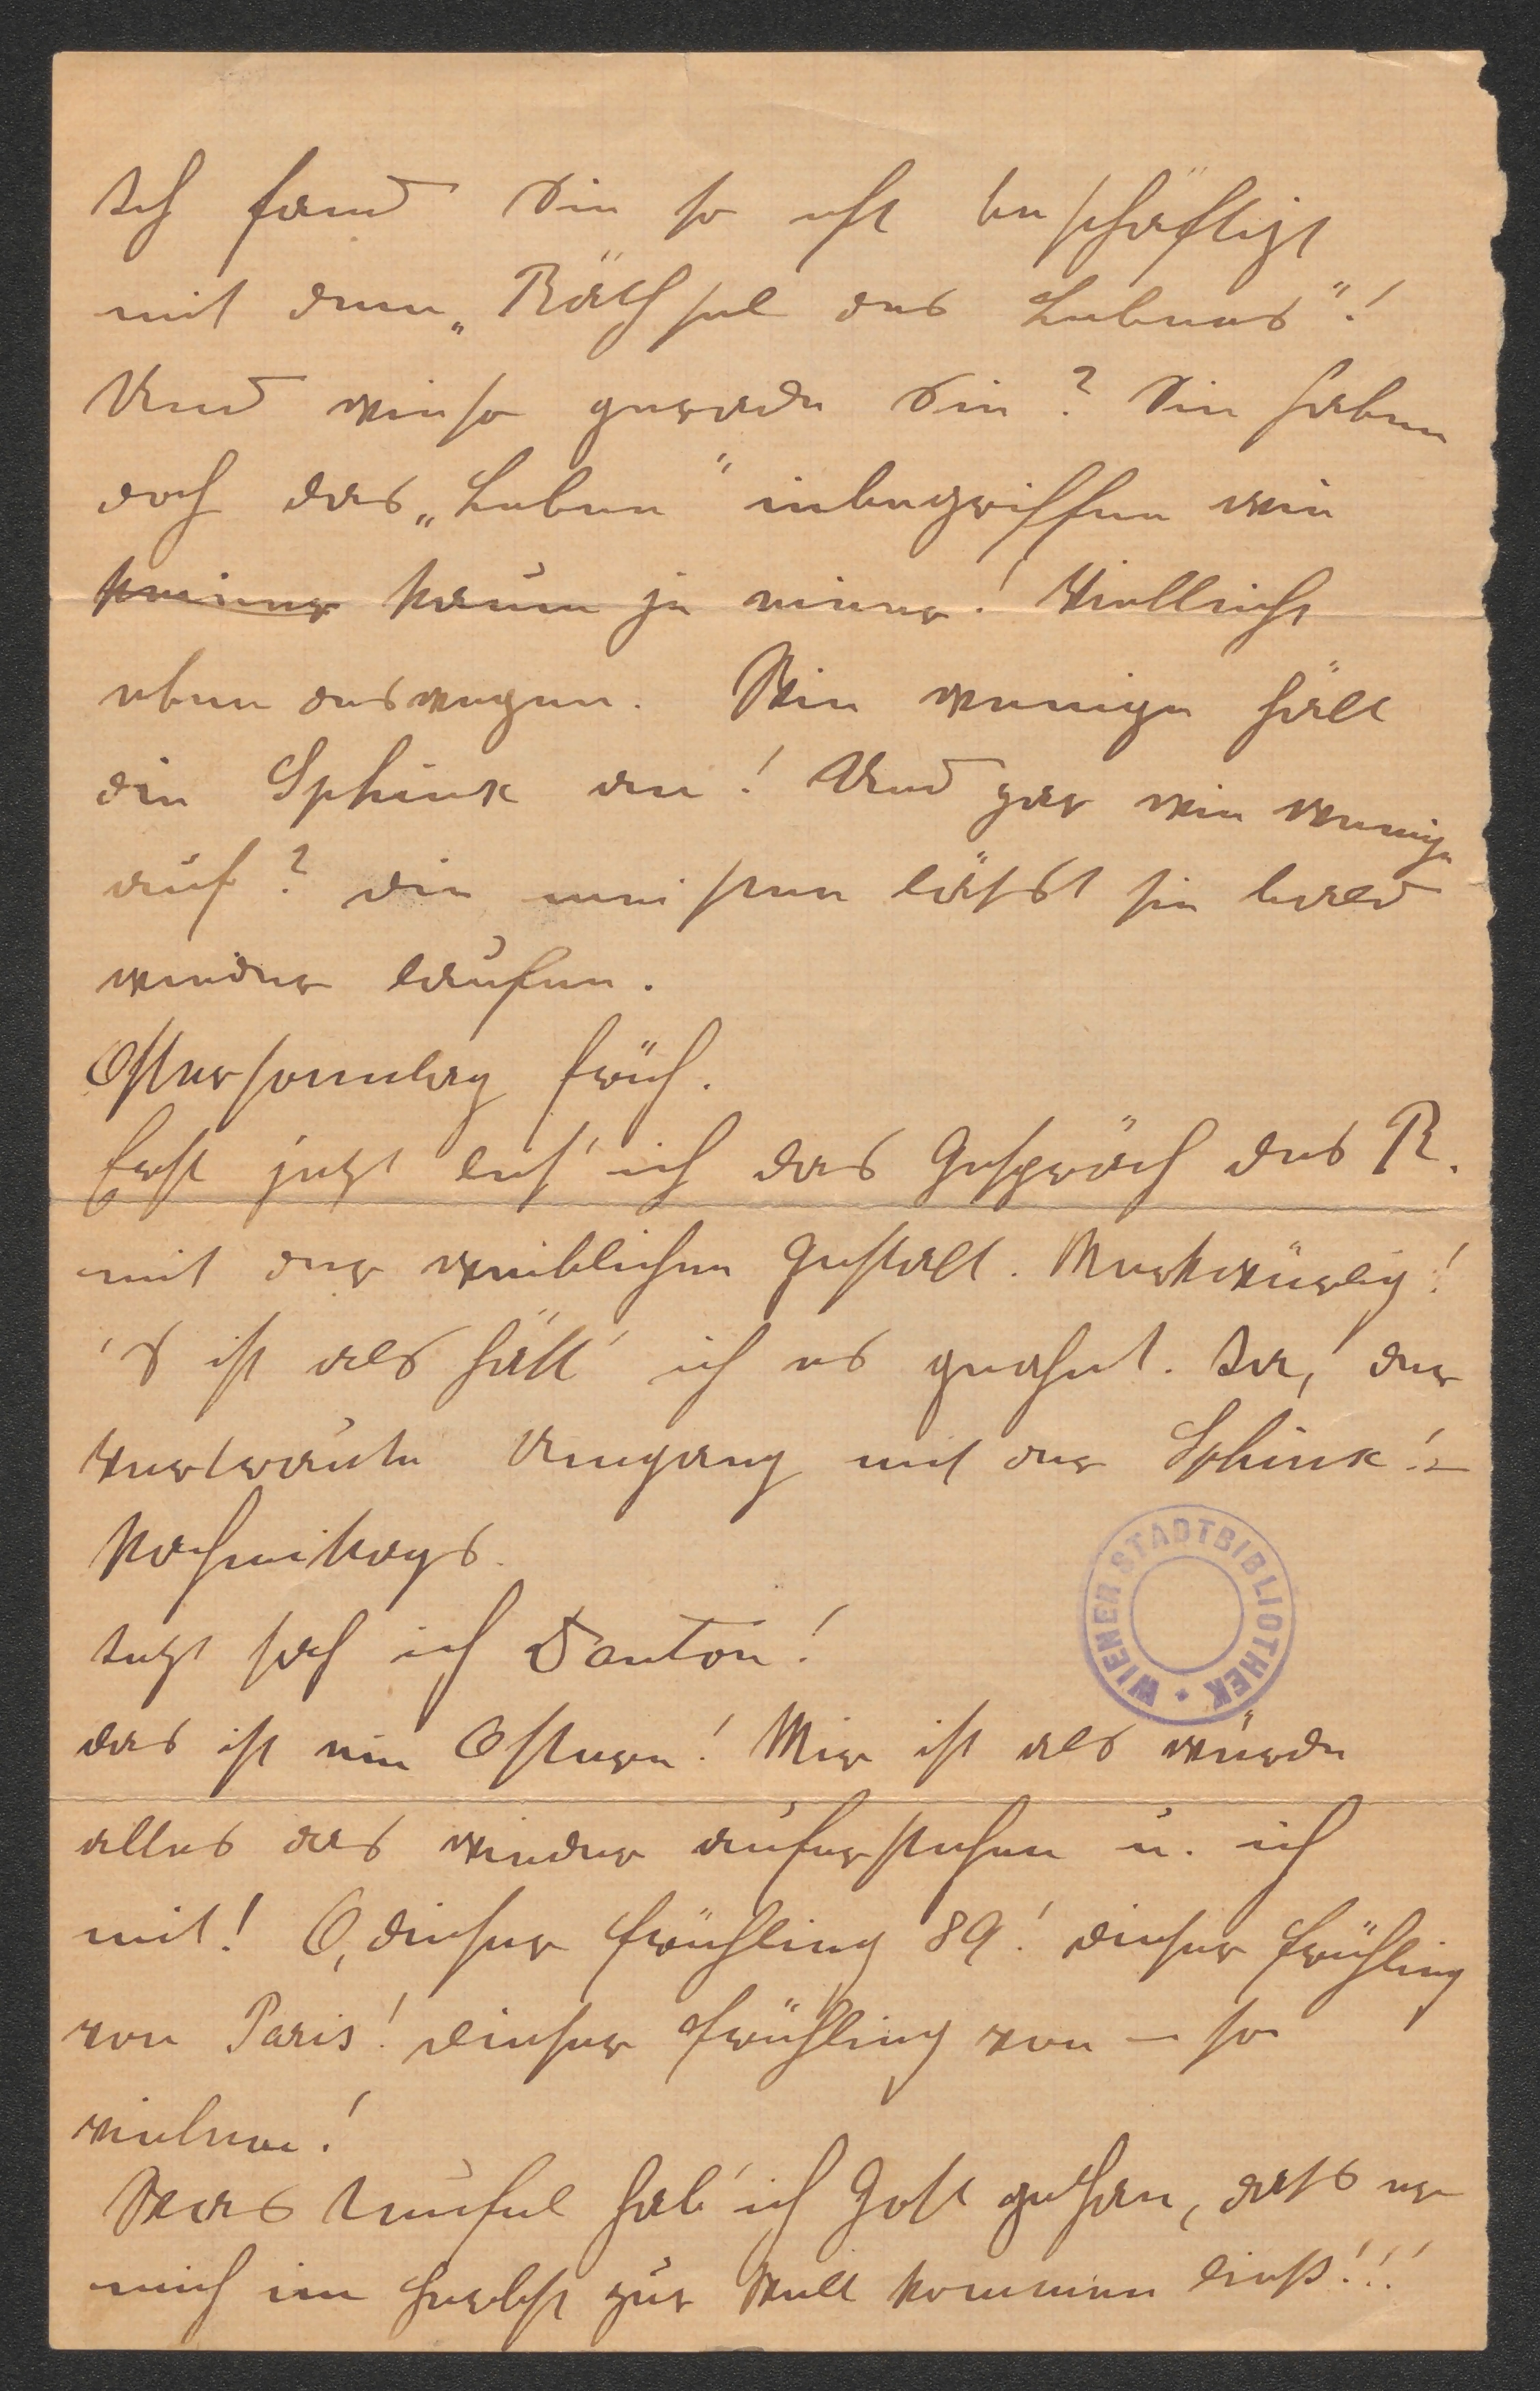 Ich fand Sie so oft beschäftigt
mit dem „Räthsel des Lebens"!
Und wieso gerade Sie? Sie haben
doch das „Leben" inbegriffen wie
keiner kaum je einer! Vielleicht
eben deswegen. Wie wenige hält
die Sphinx an! Und gar wie wenige
auf? die meisten läßst sie bald
wieder laufen.
Ostersonntag früh.
Erst jetzt les' ich das Gespräch des R.
mit der weiblichen Gestalt. Merkwürdig!
's ist als hätt' ich es geahnt. Ja, der
vertraute Umgang mit der Sphinx! –
Nachmittags.
Jetzt sah ich Danton!
das ist ein Ostern! Mir ist als würde
alles das wieder auferstehen u. ich
mit! O, dieser Frühling 89! dieser Frühling
von Paris! dieser Frühling von – so
vielem!
Was Teufel hab' ich Gott gethan, dass er
mich im Herbst zur Welt kommen ließ!!!
WIENER STADTBIBLIOTHEK